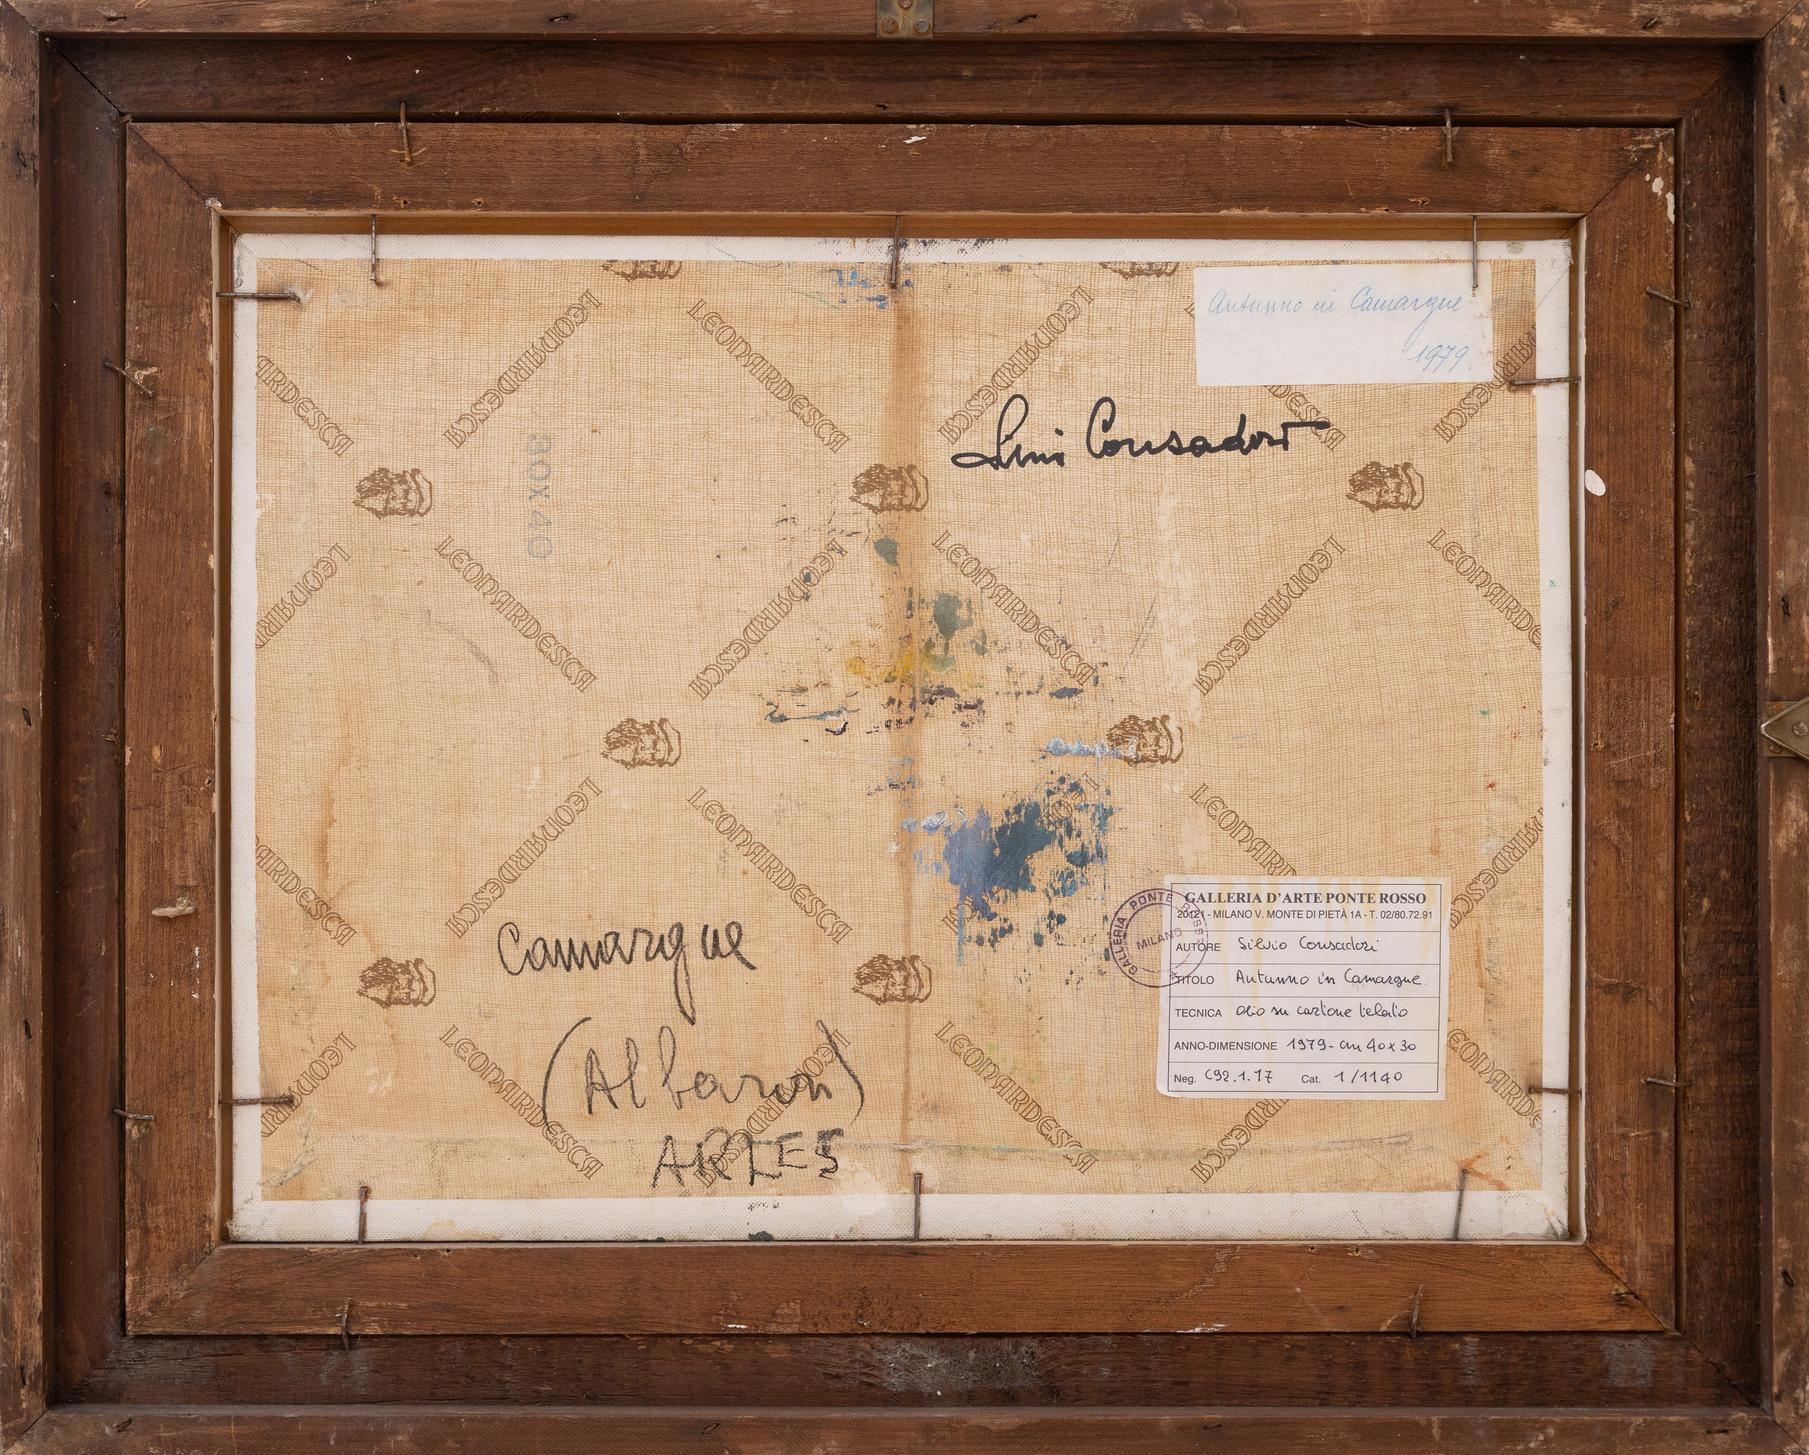 Autunno in Camargue
1979
Consadori
30X40
LEONARDESCA
GALLERIA PONTE ROSSO
MILANO
GALLERIA D'ARTE PONTE ROSSO
20121 - MILANO V. MONTE DI PIETÀ 1A - T. 02/80.72.91
AUTORE Silvio Consadori
TITOLO Autunno in Camargue
TECNICA olio su cartone telato
ANNO-DIMENSIONE 1979 - cm 40x30
Neg. C92.1.17 Cat. 1/1140
Camargue
(Albaron)
ARLES